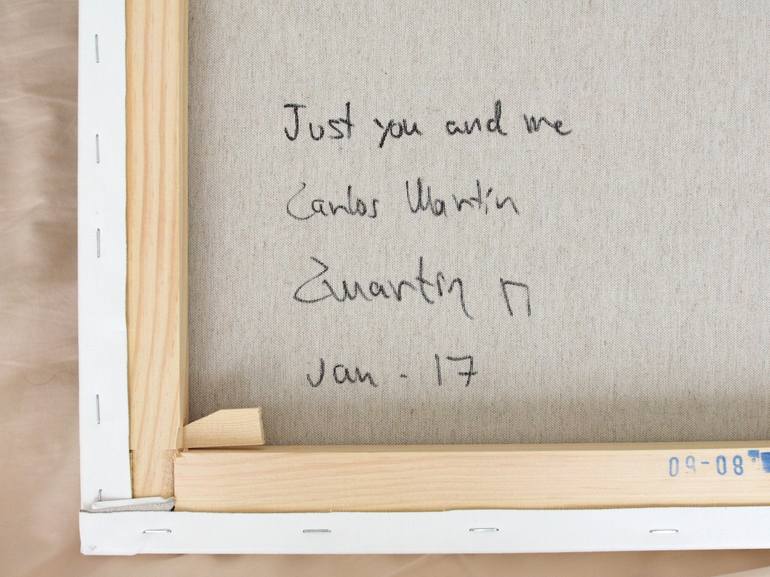 Just you and me
Carlos Martín
Cmartín
Jan - 17
09-08